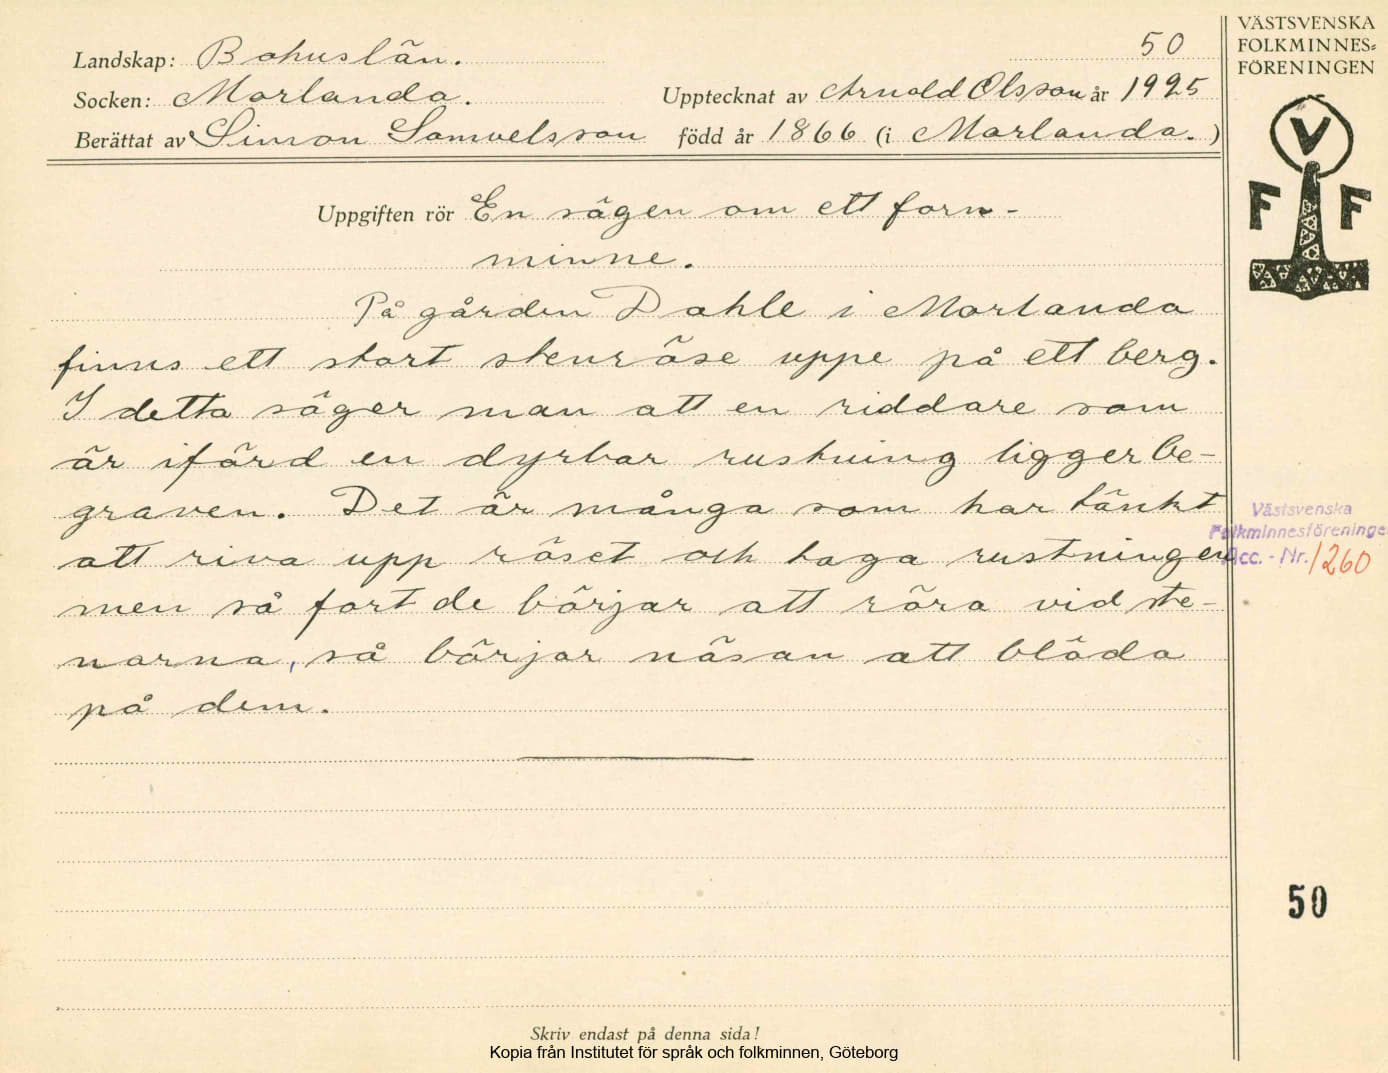 50
Landskap: Bohuslän.
Socken: Morlanda. Upptecknat av Arnold Olsson år 1925
Berättat av Simon Samuelsson född år 1866 (i Morlanda.)
Uppgiften rör En sägen om ett forn-
minne.
På gården Dahle i Morlanda
finns ett stort stenröse uppe på ett berg.
I detta säger man att en riddare som
är iförd en dyrbar rustning ligger be-
graven. Det är många som har tänkt
att riva upp röset och taga rustningen
men så fort de börjar att röra vid ste-
narna, så börjar näsan att blöda
på dem.
Skriv endast på denna sida!
Kopia från Institutet för språk och folkminnen, Göteborg
VÄSTSVENSKA
FOLKMINNES-
FÖRENINGEN
V
F F
Västsvenska
Folkminnesföreninge
Acc. - Nr. 1260
50